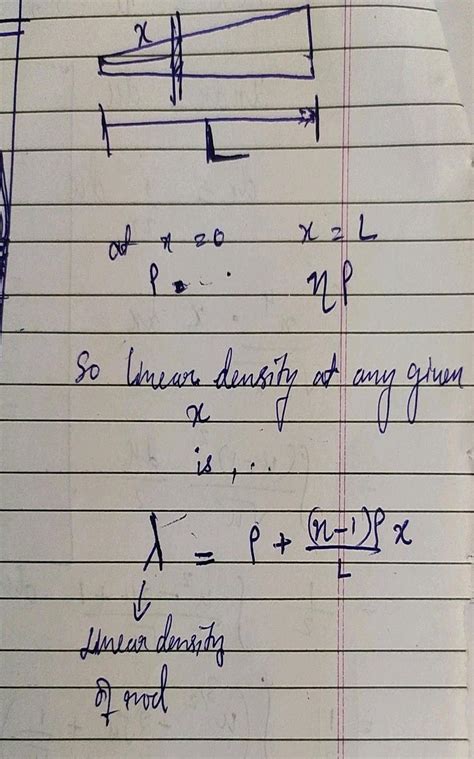 x
L
at x = 0 x = L
ρ ηρ
So linear density at any given
x
is, ...
λ = ρ + (n-1)ρ/L x
linear density
of rod